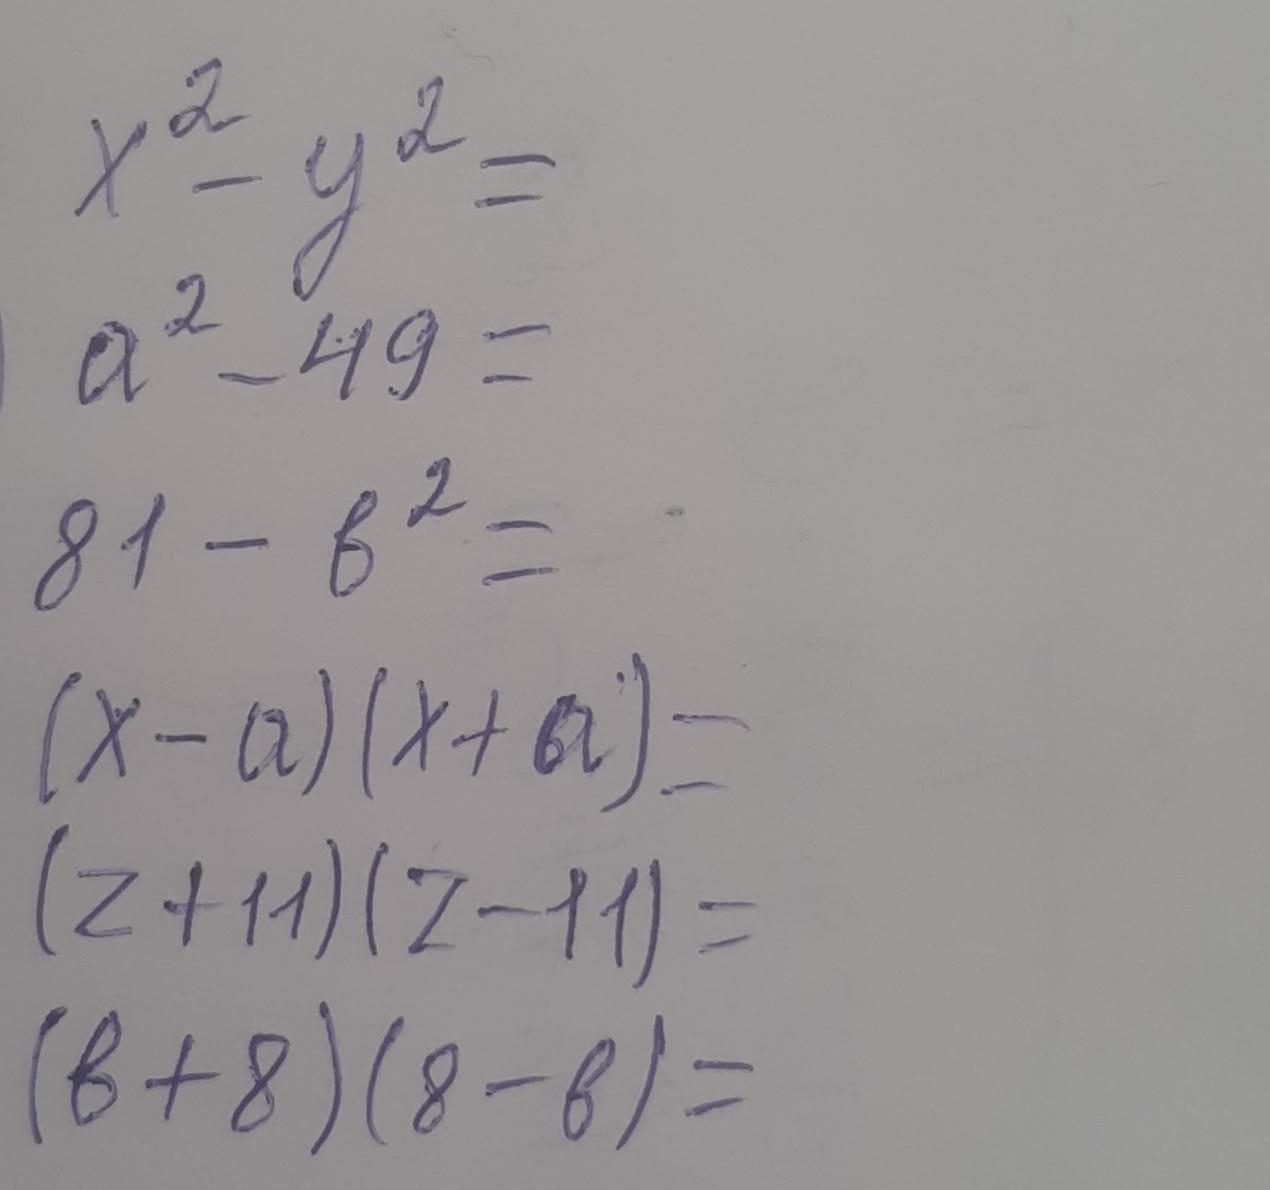 x² - y² =
a² - 49 =
81 - b² =
(x - a)(x + a) =
(z + 11)(z - 11) =
(b + 8)(8 - b) =